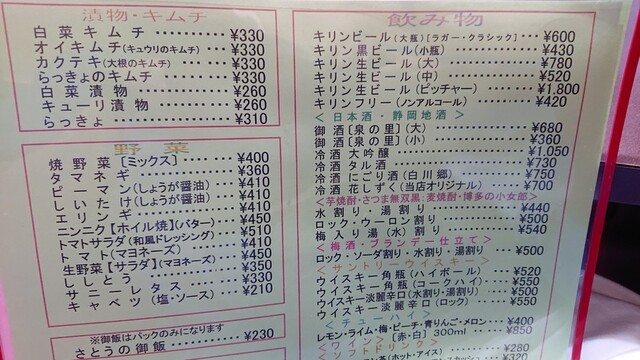 漬物・キムチ
白菜キムチ ¥330
オイキムチ(キュウリのキムチ) ¥330
カクテキ(大根のキムチ) ¥330
らっきょのキムチ ¥330
白菜漬物 ¥260
キューリ漬物 ¥260
らっきょ ¥310
野菜
焼野菜[ミックス] ¥400
タマネギ ¥360
ピーマン(しょうが醤油) ¥410
しいたけ(しょうが醤油) ¥410
エリンギ ¥410
ニンニク[ホイル焼](バター) ¥450
トマトサラダ(和風ドレッシング) ¥510
トマト(マヨネーズ) ¥410
生野菜[サラダ](マヨネーズ) ¥450
ししとう ¥350
サニーレタス ¥330
キャベツ(塩・ソース) ¥210
※御飯はパックのみになります
さとうの御飯 ¥230
飲み物
キリンビール(大瓶)[ラガー・クラシック] ¥600
キリン黒ビール(小瓶) ¥430
キリン生ビール(大) ¥780
キリン生ビール(中) ¥520
キリン生ビール(ピッチャー) ¥1,800
キリンフリー(ノンアルコール) ¥420
<日本酒・静岡地酒>
御酒[泉の里](大) ¥680
御酒[泉の里](小) ¥360
冷酒 大吟醸 ¥1,050
冷酒 タル酒 ¥730
冷酒 にごり酒(白川郷) ¥750
冷酒 花しずく(当店オリジナル) ¥700
<芋焼酎・さつま無双黒:麦焼酎・博多の小女郎>
水割り・湯割り ¥440
ロック・ウーロン割り ¥500
梅入り湯(水)割り ¥540
<梅酒・ブランデー仕立て>
ロック・ソーダ割り・水割り・湯割り ¥500
<サントリーウイスキー>
ウイスキー角瓶(ハイボール) ¥520
ウイスキー角瓶(コークハイ) ¥550
ウイスキー淡麗辛口(水割り・湯割り) ¥500
ウイスキー淡麗辛口(ロック) ¥550
<チューハイ>
レモン・ライム・梅・ピーチ・青りんご・メロン ¥400
<ワイン>(赤・白) 300ml ¥850
<ソフトドリンク> ¥280
(ホット・アイス) ¥320